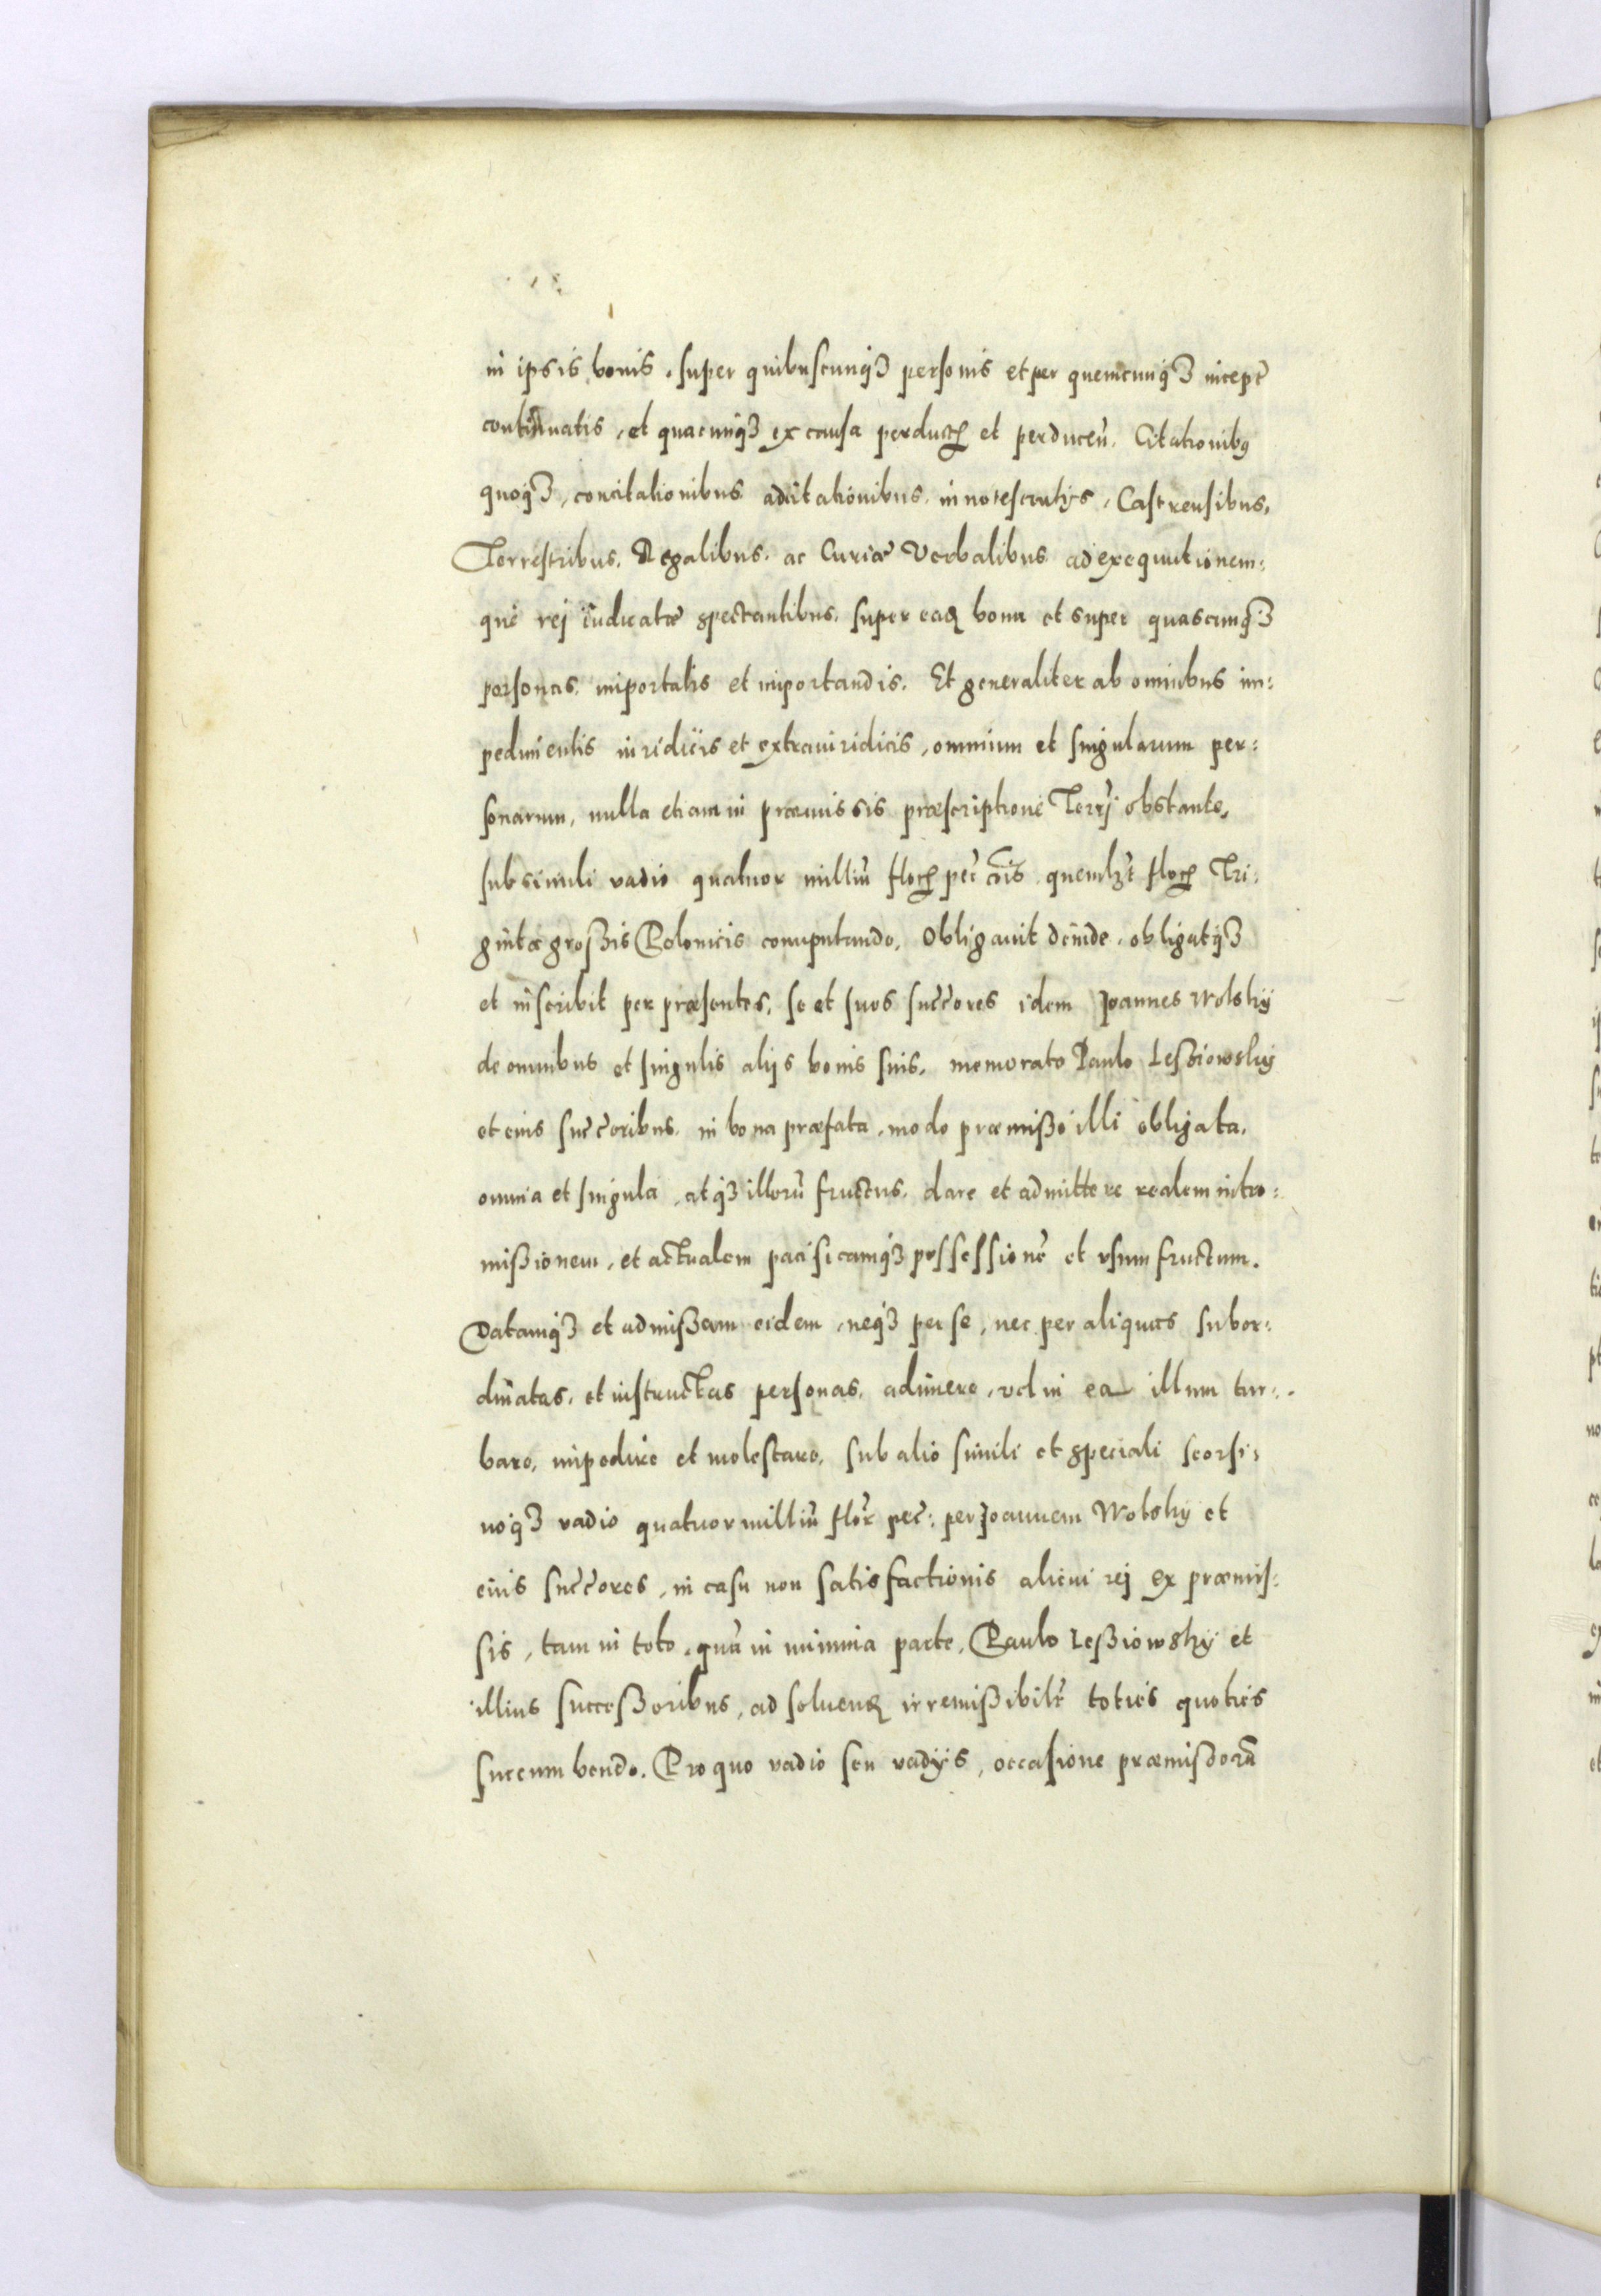 in ipsis bonis, super quibuscunqꝫ personis et per quemcunqꝫ incept̃
continuatis, et quacunqꝫ ex causa perductꝭ et perducen̄. Citationibꝰ
quoqꝫ, concitationibus adcitationibus, innotescentijs, Castrensibus,
Terrestribus, Regalibus, ac Curiæ Verbalibus ad exequutionem:
que rej iudicatæ spectantibus, super eaꝶ bona et super quascunqꝫ
personas, importatis et importandis. Et generaliter ab omnibus im:
pedimentis iuridicis et extraiuridicis, omnium et singularum per:
sonarum, nulla etiam in præmissis præscriptione Terr̃j obstante,
sub simili vadio quatuor milliū florꝭ pec̃ cōis quemlꝫt florꝭ Tri:
ginta großis Polonicis computando. Obligauit deinde, obligatqꝫ
et inscribit per præsentes, se et suos succ̃ores idem Joannes Wolsky
de omnibus et singulis alijs bonis suis, memorato Paulo Leßiowsky
et eius succ̃oribus, in bona præfata, modo præmißo illi obligata,
omnia et singula, atqꝫ illorū fructus, dare et admittere realem intro:
mißionem, et actualem pacificamqꝫ possessionē et vsumfructum.
Datamqꝫ et admißam eidem, neqꝫ per se, nec per aliquas subor:
dinatas, et instructas personas, adimere, vel in ea illum tur:
bare, impedire et molestare, sub alio simili et speciali seorsi:
uoqꝫ vadio quatuor milliū flor̃ pec̃: per Joannem Wolsky et
eius succ̃ores, in casu non satisfactionis alicui rej ex præmis:
sis, tam in toto, quā in minima parte, Paulo Leßiowsky et
illius succeßoribus, ad soluenꝶ irremißibilr̃ toties quoties
succumbendo. Pro quo vadio seu vadijs, occasione præmissorū